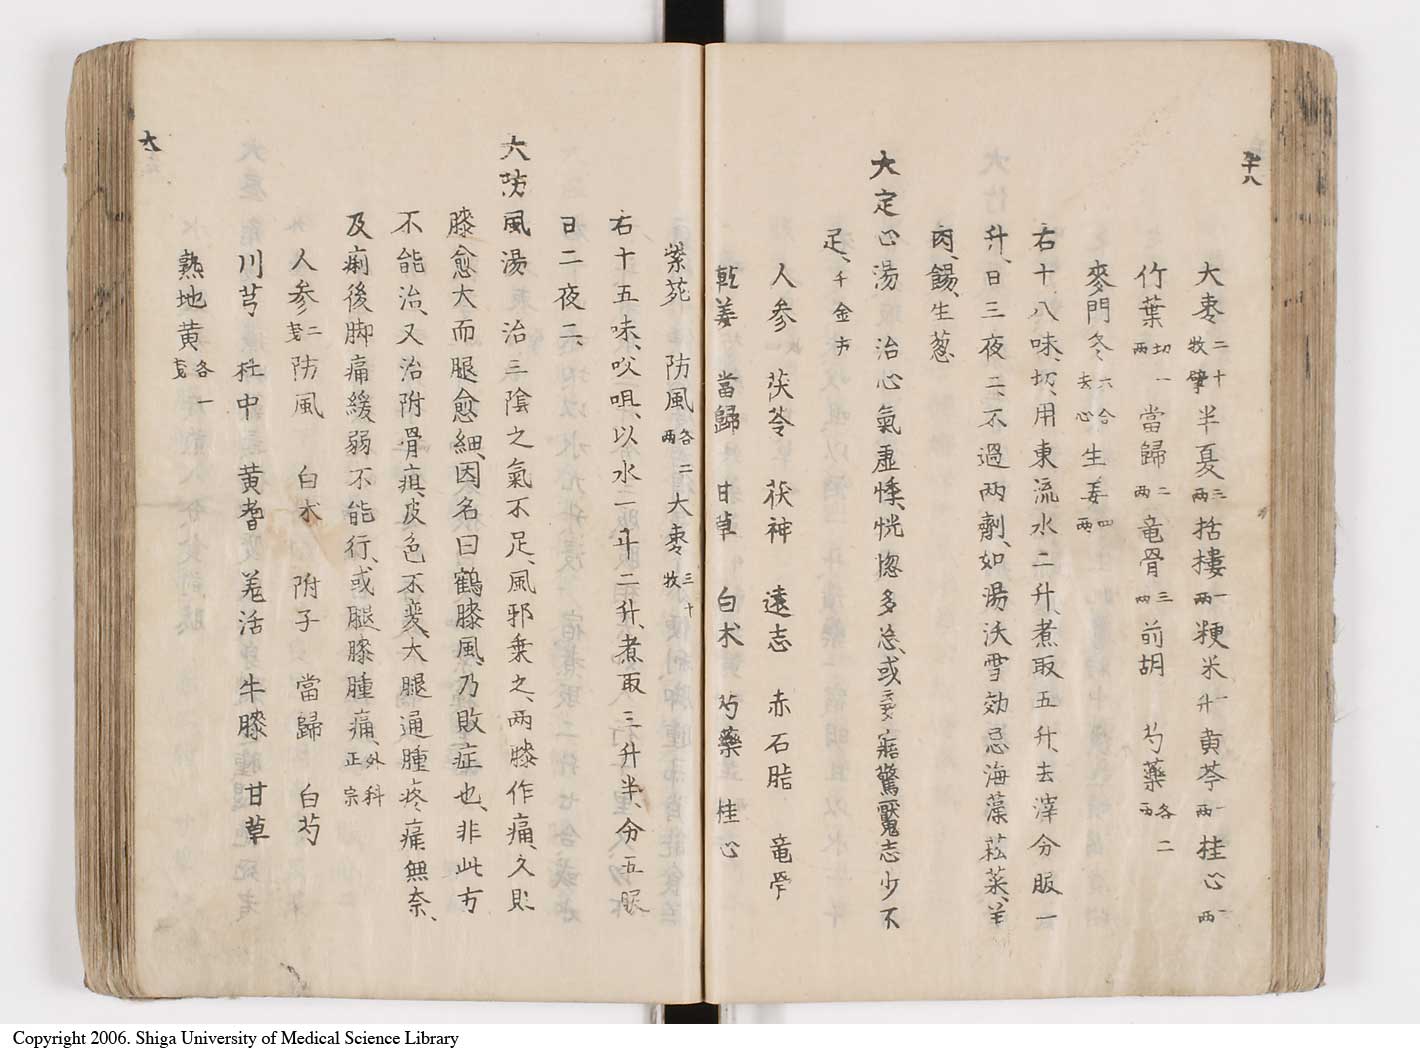 十八
大棗二十枚擘半夏三両括樓一両粳米一升黄芩一両桂心一両
竹葉切一両當歸二両竜骨三両前胡 芍薬各二両
麥門冬六合去心生姜四両
右十八味、切、用東流水二升、煮取五升、去滓分服一
升、日三夜二、不過両劑、如湯沃雪効忌海藻菘菜、羊
肉、餳、生葱
大定心湯 治心氣虚悸、恍惚多忘、或夢寤驚魘志少不
足、千金方
人参 茯苓 茯神 遠志 赤石脂 竜骨
乾姜 當歸 甘草 白朮 芍薬 桂心
紫菀 防風各二両大棗三十枚
右十五味、㕮咀、以水一斗二升、煮取三升半、分五服
日二夜二、
大防風湯 治三陰之氣不足、風邪乗之、両膝作痛、久則
膝愈大而腿愈細、因名曰鶴膝風、乃敗症也、非此方
不能治、又治附骨疽、皮色不変、大腿通腫疼痛無奈、
及痢後脚痛緩弱不能行、或腿膝腫痛、外科正宗
人参二戔防風 白朮 附子 當歸 白芍
川芎 杜中 黄耆 羌活 牛膝 甘草
熟地黄各一戔
大
Copyright 2006. Shiga University of Medical Science Library